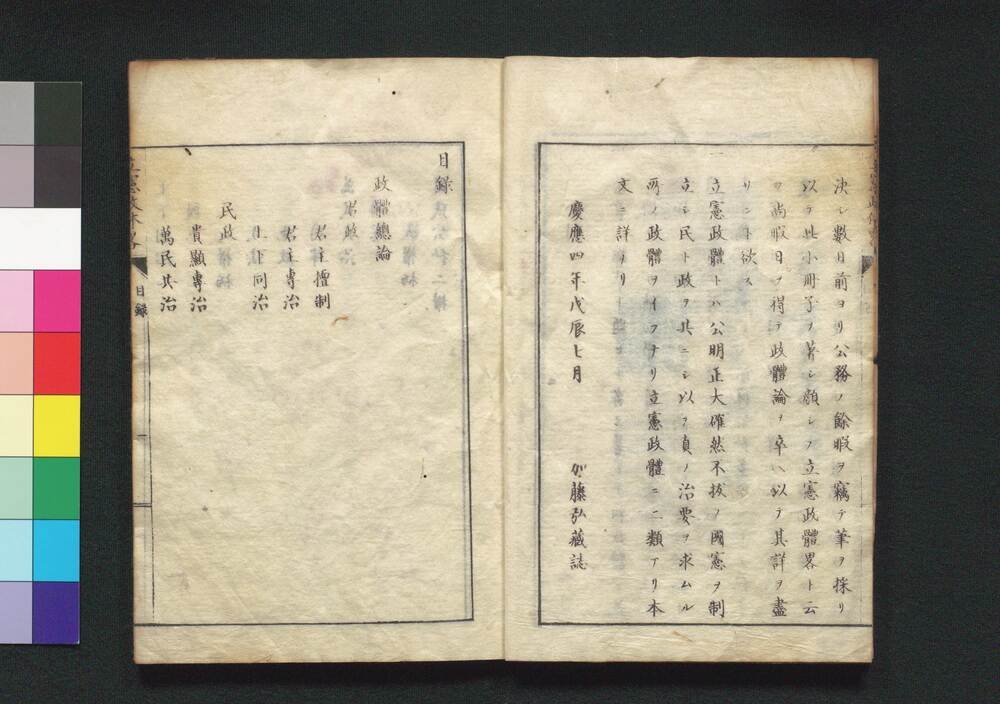 決シ數日前ヨリ公務ノ餘暇ヲ竊テ筆ヲ採リ
以テ此小冊子ヲ著シ願シテ立憲政體畧ト云
フ尚暇日ヲ得テ政體論ヲ卒ヘ以テ其詳ヲ盡
サント欲ス
立憲政體トハ公明正大確然不拔ノ國憲ヲ制
立シ民ト政ヲ共ニシ以テ眞ノ治要ヲ求ムル
所ノ政體ヲイフナリ立憲政體ニ二類アリ本
文ニ詳ナリ
慶應四年戊辰七月
加藤弘藏誌
目録
政體總論
君政
君主擅制
君主專治
上下同治
民政
貴顯專治
萬民共治
目録